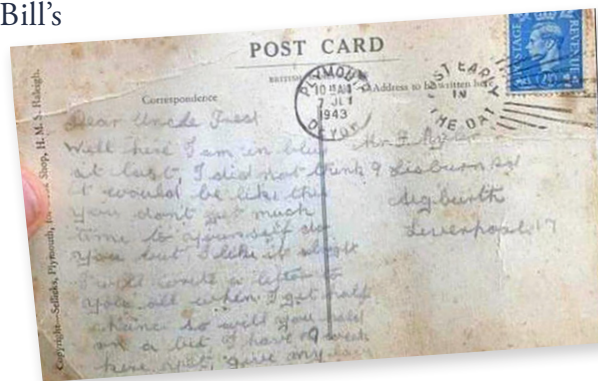 Bill's
POST CARD
BRITISH
Correspondence
Address to be written here
PLYMOUTH
10
7 JL
1943
DEVON
POST EARLY
IN
THE DAY
POSTAGE
REVENUE
Copyright—Sellicks, Plymouth, Shop, H.M.S. Raleigh.
Dear Uncle Fred
Well here I am in blue
at last, I did not think
it would be like this
you don't get much
time to yourself do
you but I like it alright
I will write a letter to
you all when I get half
chance so will you hold
on a bit I have 9 weeks
here yet, give my love
Mr F.
9 Lisburn Rd
Aigburth
Liverpool 17